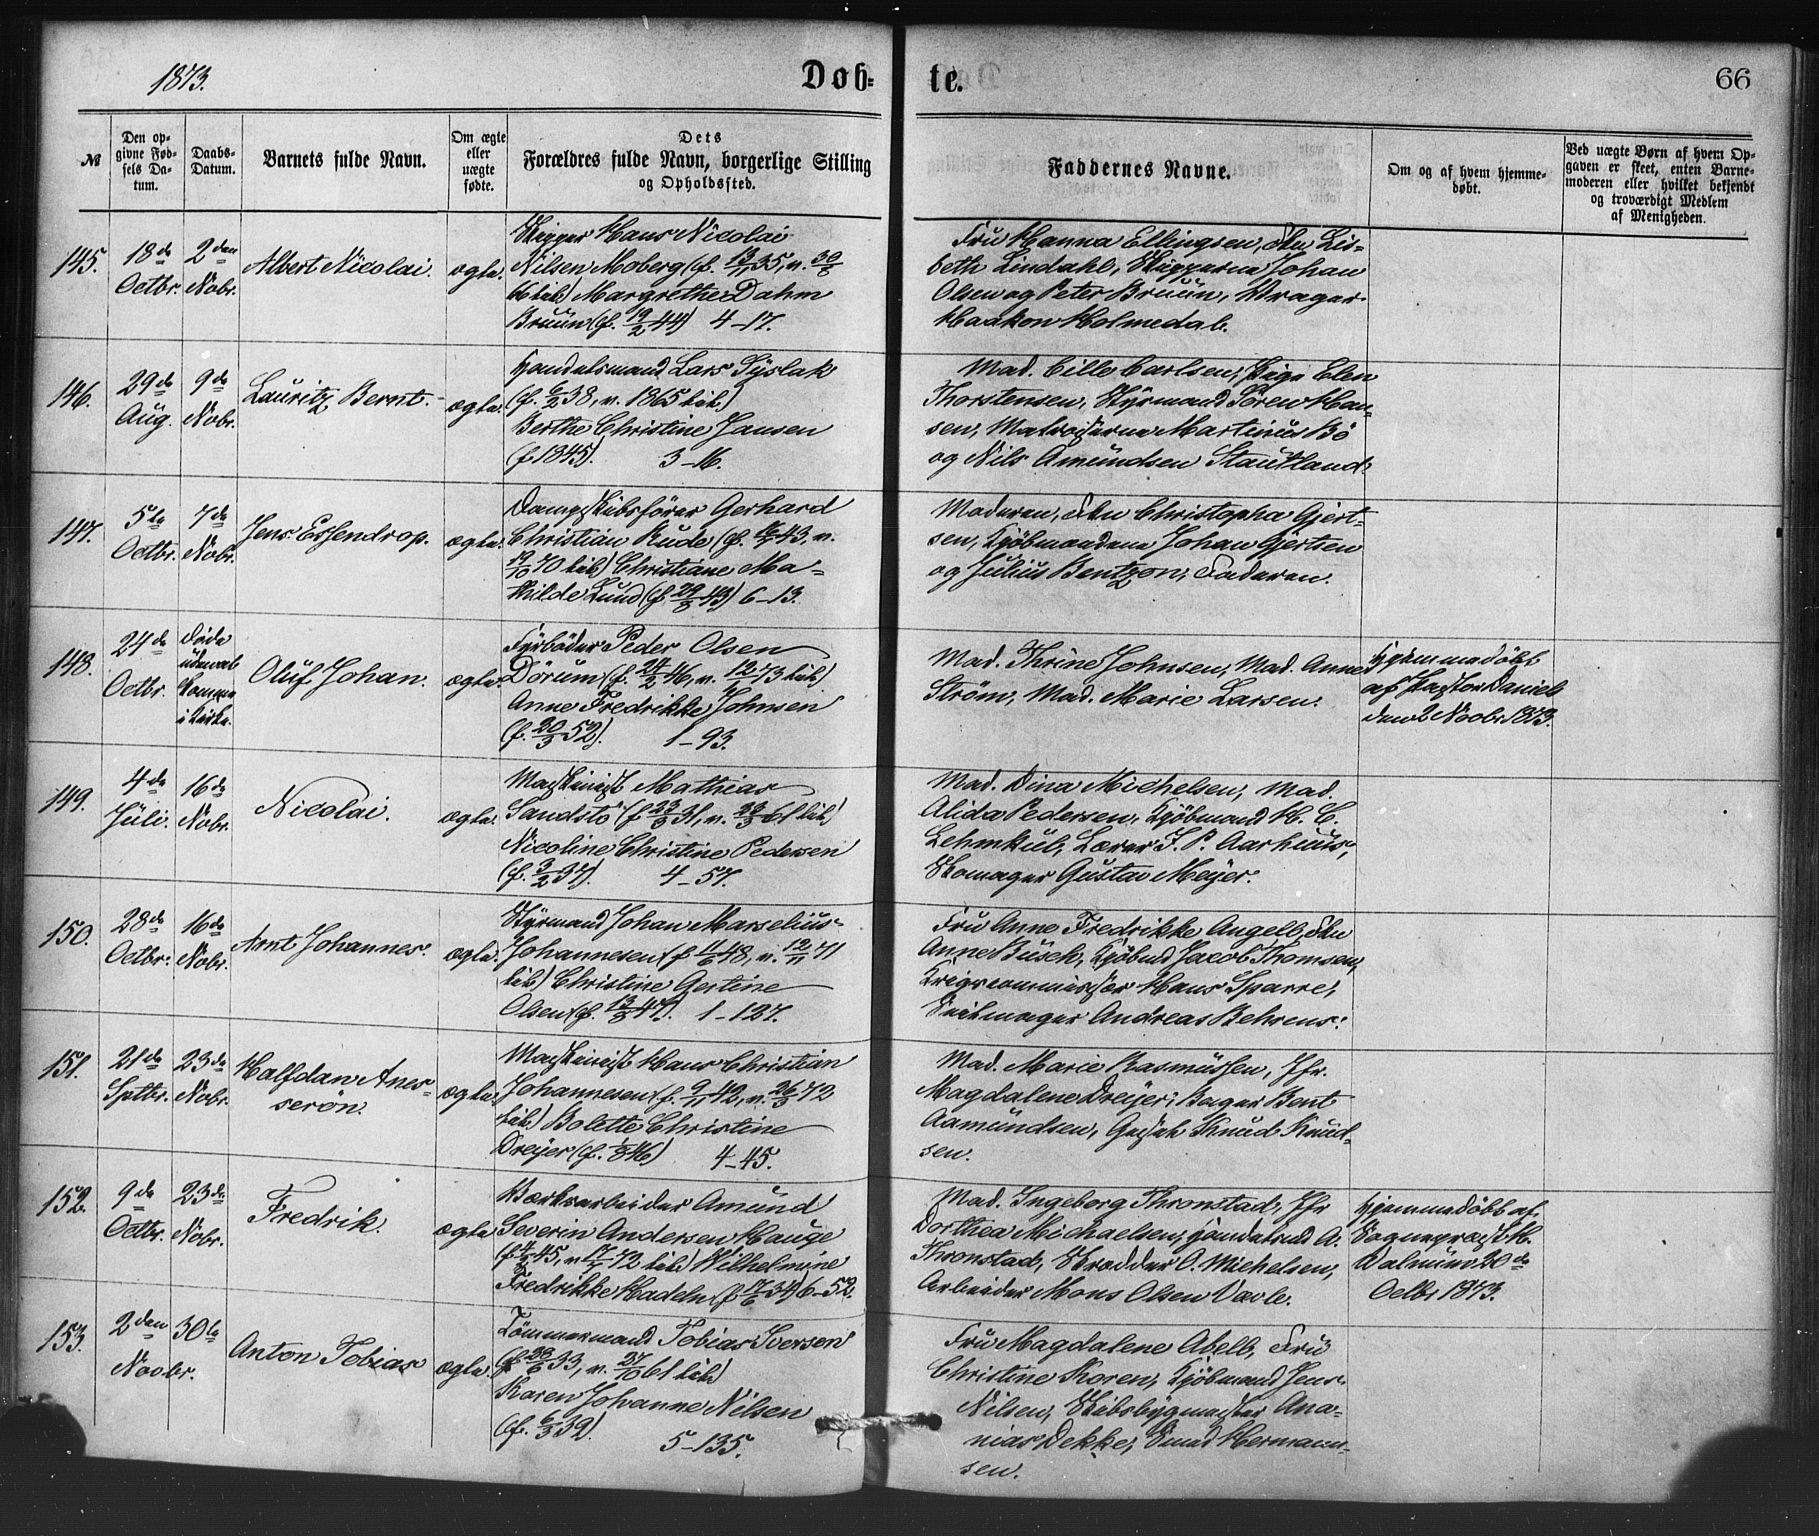 1873.
Døb-
te.
66
№
Den op-
givne Fød-
sels Da-
tum.
Daabs-
Datum.
Barnets fulde Navn.
Om ægte
eller
uægte
fødte.
Dets
Forældres fulde Navn, borgerlige Stilling
og Opholdssted.
Faddernes Navne.
Om og af hvem hjemme-
døbt.
Ved uægte Børn af hvem Op-
gaven er skeet, enten Barne-
moderen eller hvilket bekjendt
og troværdigt Medlem
af Menigheden.
145.
18de
Octbr.
2den
Nobr.
Albert Nicolai.
ægte.
Skipper Hans Nicolai
Nilsen Moberg (f. 13/11 35, v. 30/8
66 hib) Margrethe Dahm
Bruun (f. 19/2 44) 4–17.
Fru Hanna Ellingsen, Fru Lis-
beth Lindahl, Skipperne Johan
Olsen og Peter Bruun, Drager
Haakon Holmedal.
146.
29de
Aug.
9de
Nobr.
Lauritz Bernt.
ægte.
Handelsmand Lars Tyslak
(f. 6/2 38, v. 1865 hib)
Berthe Christine Jansen
(f 1845). 3–16.
Mad. Cille Carlsen, Pige Elen
Thorstensen, Styrmand Søren Han-
sen, Matroserne Martinus Bø
og Nils Amundsen Stautland.
147.
5te
Octbr.
7de
Nobr.
Jens Essendrop.
ægte.
Dampskibsfører Gerhard
Christian Rude (f. 43, v.
70 hib) Christiane Ma-
thilde Lund (f. 29/8 43) 6–13.
Moderen, Fru Christopha Gjert-
sen, Kjøbmændene Johan Gjertsen
og Julius Bentzon, Faderen.
148.
24de
Octbr.
Døde
uden at
komme
i Kirke.
Oluf Johan.
ægte.
Fyrbøder Peder Olsen
Dørum (f. 24/2 46, v. 12/1 73 hib)
Anne Fredrikke Johnsen
(f. 20/3 52). 1–93.
Mad. Thrine Johnsen, Mad. Anne
Strøm, Mad. Marie Larsen.
Hjemmedøbt
af Pastor Daniel
den 2 Novbr 1873.
149.
4de
Juli.
16de
Nobr.
Nicolai.
ægte.
Maskinist Mathias
Sandstø (f 23/3 31, v. 61 hib)
Nicoline Christine Pedersen
(f. 3/2 37). 4–57.
Mad. Dina Michelsen, Mad.
Alida Pedersen, Kjøbmand H. C.
Lehmkul, Lærer J. P. Aarhuus,
Skomager Gustav Meyer.
150.
28de
Octbr.
16de
Nobr.
Arnt Johannes.
ægte.
Styrmand Johan Marselius
Johannesen (f 11/6 48, v. 12/11 71
hib) Christine Gertine
Olsen (f. 13/3 47). 1–127.
Fru Anne Fredrikke Angell, Fru
Anne Busch, Kjøbmd Jacob Thomsen,
Krigscommissær Hans Sparre,
Seilmager Andreas Behrens.
151.
21de
Sptbr.
23de
Nobr.
Halfdan Anes-
serøn.
ægte.
Maskinist Hans Christian
Johannesen (f. 9/11 42, v. 26/3 72
hib) Bolette Christine
Dreyer (f. 46) 4–45.
Mad. Marie Rasmussen, Jfr.
Magdalene Dreyer, Bager Bent
Aamundsen, Knud Knud-
sen.
152.
9de
Octbr.
23de
Nobr.
Fredrik.
ægte
Værksarbeider Amund
Severin Andersen Hauge
(f 45, v. 72 hib) Wilhelmine
Fredrikke Hadeln (f 17/6 34) 6–52.
Mad. Ingeborg Thronstad, Jfr
Dorthea Michaelsen, Handelsmd A.
Thronstad, Skrædder O. Michelsen,
Arbeider Mons Olsen Davle.
Hjemmedøbt af
Sogneprest H.
Walnum 20de
Octbr 1873.
153.
2den
Novbr.
30te
Anton Tobias
ægte.
Tømmermand Tobias Iversen
(f 28/6 33, v. 27/10 61 hib)
Karen Johanne Nilsen
(f. 6/3 39). 5–135.
Fru Magdalene Abell, Fru
Christine Koren, Kjøbmand Jens
Nilsen, Skibsbygmester Ana-
nias Dekke, Smed Hermann-
sen.